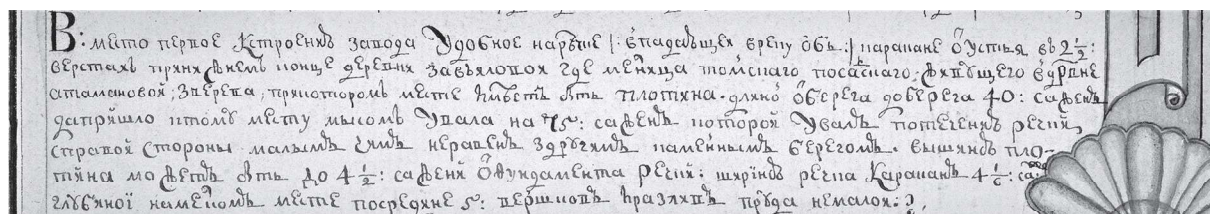 В: место первое Кстроенью завода Удобное нарѣчке | впадающеи вреку обь: | накакане ѿустья въ 2½:
верстахъ прянижнемъ конце деревни завьяловои где мелница томскаго посацкаго: живущего вдрвне
аташановой, Зверева, прикоторомъ месте имѣетъ быть плотина. длиною ѿберега доберега 40: сажень
дапришло ктому месту мысомъ Увала на 75: сажень которой Увалъ потечению речки,
справой Стороны малымъ чемъ неравенъ Здругимъ каменнымъ берегомъ. вышиною пло-
тина можетъ быть до 4½: сажени ѿфундамента речки: ширина речки Каракань 4⅙: саж
глубиной накаменомъ месте посредине 5: вершковъ праздливъ пруда немалои: